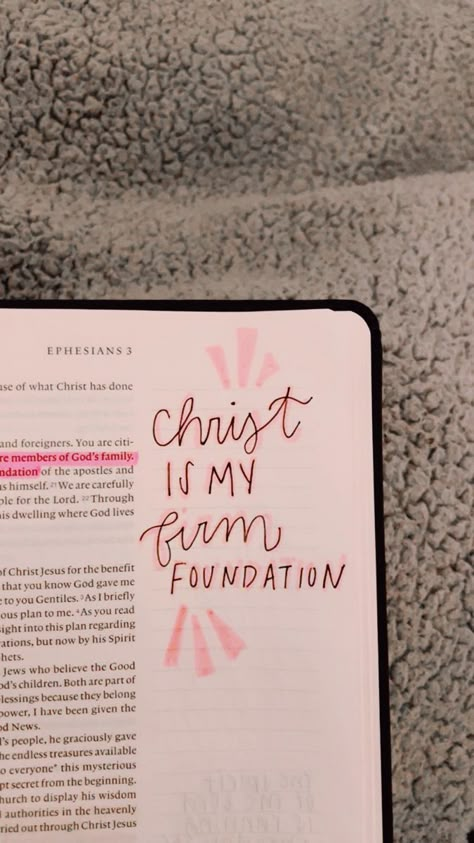 EPHESIANS 3
use of what Christ has done
and foreigners. You are citi-
re members of God's family.
ndation of the apostles and
us himself. 21 We are carefully
ple for the Lord. 22 Through
his dwelling where God lives
of Christ Jesus for the benefit
that you know God gave me
e to you Gentiles. 3 As I briefly
ous plan to me. 4 As you read
sight into this plan regarding
rations, but now by his Spirit
phets.
Jews who believe the Good
od's children. Both are part of
lessings because they belong
power, I have been given the
od News.
l's people, he graciously gave
he endless treasures available
o everyone* this mysterious
pt secret from the beginning.
hurch to display his wisdom
l authorities in the heavenly
ried out through Christ Jesus
Christ
IS MY
firm
FOUNDATION